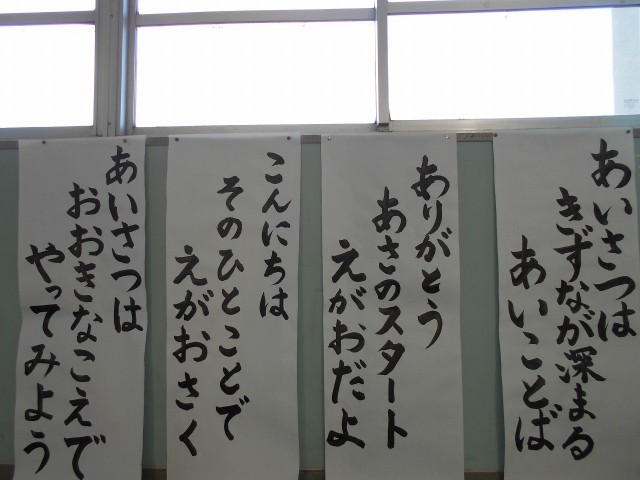 あいさつは
きずなが深まる
あいことば
ありがとう
あさのスタート
えがおだよ
こんにちは
そのひとことで
えがおさく
あいさつは
おおきなこえで
やってみよう